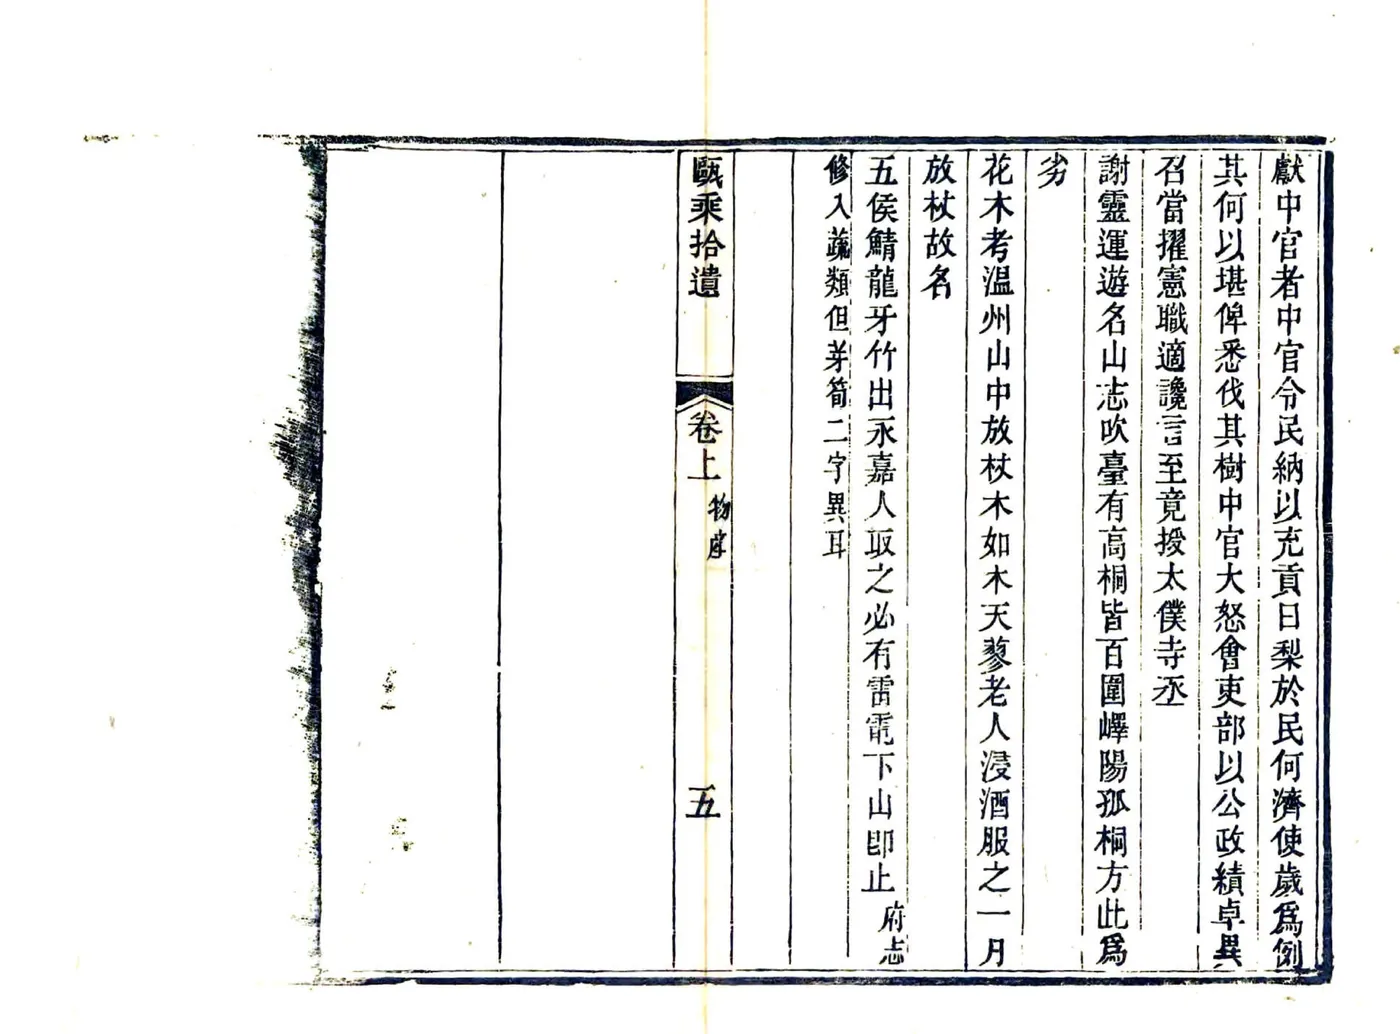 獻中官者中官令民納以充貢日梨於民何濟使歲爲例
其何以堪俾悉伐其樹中官大怒會吏部以公政績卓異
召當擢憲職適讒言至竟授太僕寺丞
謝靈運遊名山志吹臺有高桐皆百圍嶧陽孤桐方此爲
劣
花木考溫州山中放杖木如木天蓼老人浸酒服之一月
放杖故名
五侯鯖龍牙竹出永嘉人取之必有雷電下山卽止府志
修入蔬類但芽筍二字異耳
甌乘拾遺
卷上
物產
五